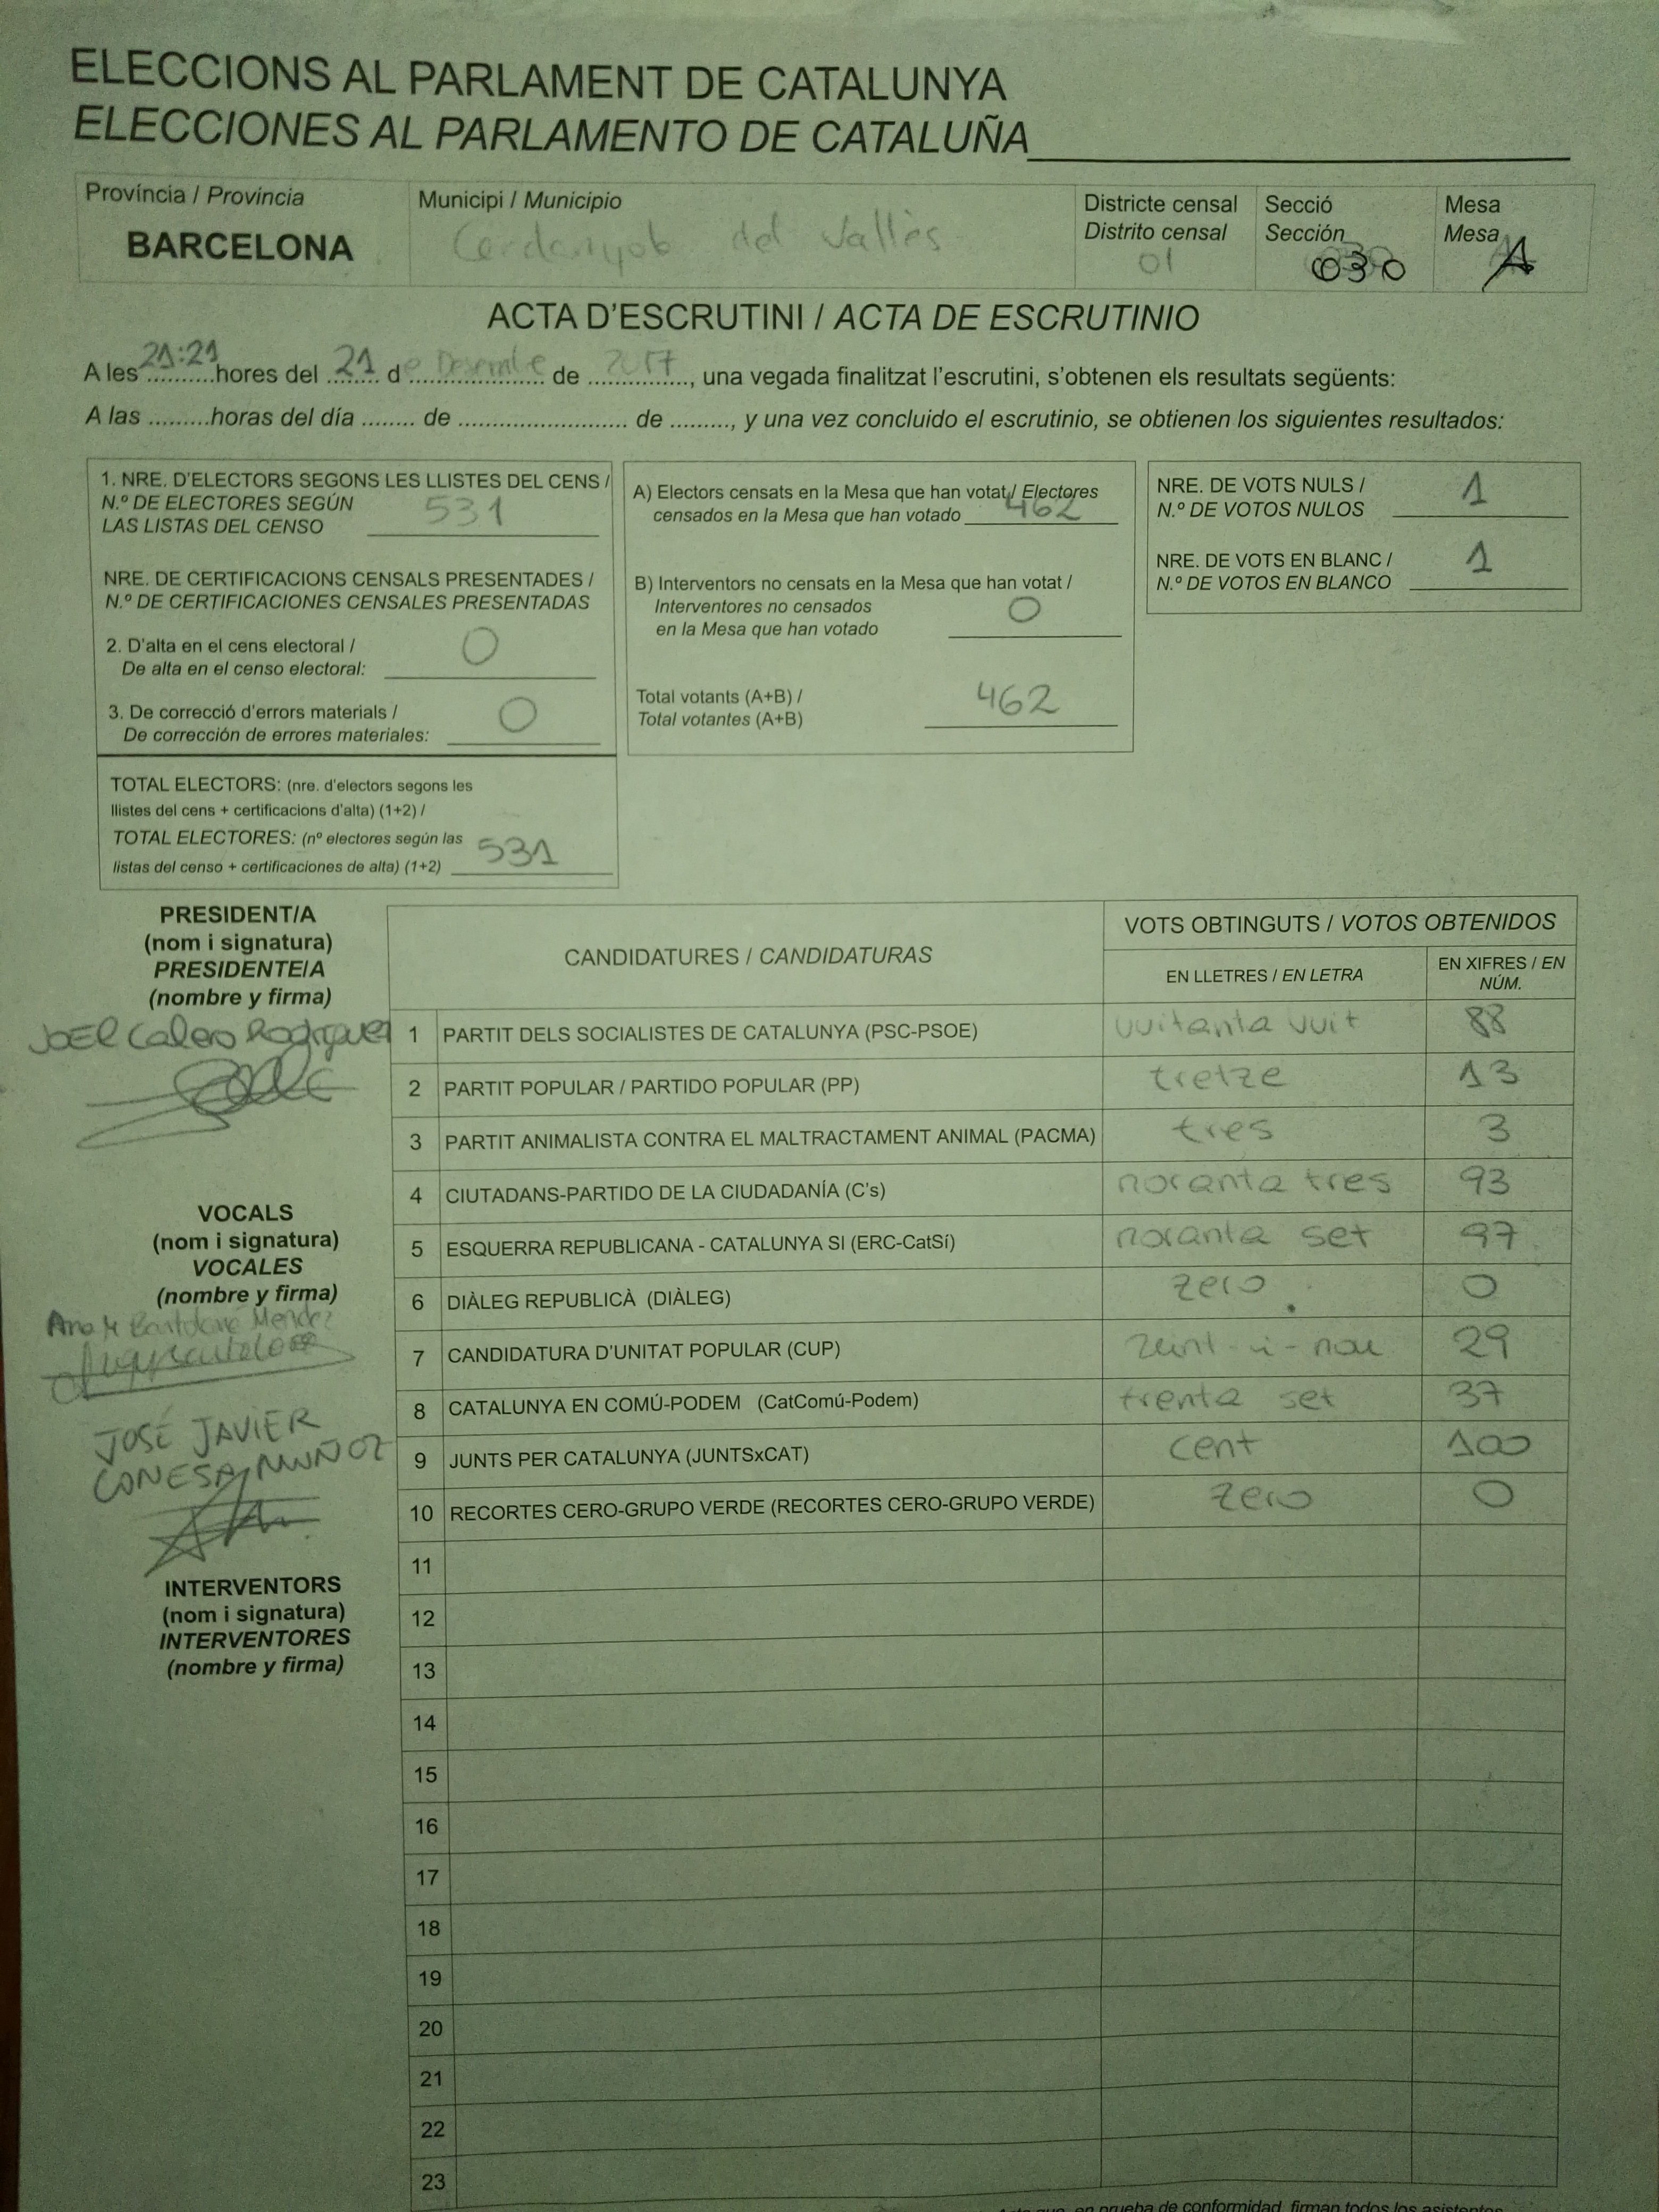 ELECCIONS AL PARLAMENT DE CATALUNYA
ELECCIONES AL PARLAMENTO DE CATALUÑA
Província / Provincia
BARCELONA
Municipi / Municipio
Cerdanyola del Vallès
Districte censal
Distrito censal
01
Secció
Sección
030
Mesa
Mesa
A
ACTA D'ESCRUTINI / ACTA DE ESCRUTINIO
A les 21:21 hores del 21 de Desembre de 2017, una vegada finalitzat l'escrutini, s'obtenen els resultats següents:
A las .........horas del día ........ de ......................... de ........., y una vez concluido el escrutinio, se obtienen los siguientes resultados:
1. NRE. D'ELECTORS SEGONS LES LLISTES DEL CENS /
N.º DE ELECTORES SEGÚN
LAS LISTAS DEL CENSO 531
NRE. DE CERTIFICACIONS CENSALS PRESENTADES /
N.º DE CERTIFICACIONES CENSALES PRESENTADAS
2. D'alta en el cens electoral /
De alta en el censo electoral: 0
3. De correcció d'errors materials /
De corrección de errores materiales: 0
TOTAL ELECTORS: (nre. d'electors segons les
llistes del cens + certificacions d'alta) (1+2) /
TOTAL ELECTORES: (nº electores según las
listas del censo + certificaciones de alta) (1+2) 531
A) Electors censats en la Mesa que han votat / Electores
censados en la Mesa que han votado 462
B) Interventors no censats en la Mesa que han votat /
Interventores no censados
en la Mesa que han votado 0
Total votants (A+B) /
Total votantes (A+B) 462
NRE. DE VOTS NULS /
N.º DE VOTOS NULOS 1
NRE. DE VOTS EN BLANC /
N.º DE VOTOS EN BLANCO 1
PRESIDENT/A
(nom i signatura)
PRESIDENTE/A
(nombre y firma)
JOEL Calero Rodriguez
VOCALS
(nom i signatura)
VOCALES
(nombre y firma)
Ana M Bartolomé Mendez
JOSÉ JAVIER
CONESA MUÑOZ
INTERVENTORS
(nom i signatura)
INTERVENTORES
(nombre y firma)
CANDIDATURES / CANDIDATURAS
VOTS OBTINGUTS / VOTOS OBTENIDOS
EN LLETRES / EN LETRA
EN XIFRES / EN
NÚM.
1 PARTIT DELS SOCIALISTES DE CATALUNYA (PSC-PSOE) vuitanta vuit 88
2 PARTIT POPULAR / PARTIDO POPULAR (PP) tretze 13
3 PARTIT ANIMALISTA CONTRA EL MALTRACTAMENT ANIMAL (PACMA) tres 3
4 CIUTADANS-PARTIDO DE LA CIUDADANÍA (C's) noranta tres 93
5 ESQUERRA REPUBLICANA - CATALUNYA SI (ERC-CatSí) noranta set 97
6 DIÀLEG REPUBLICÀ (DIÀLEG) zero 0
7 CANDIDATURA D'UNITAT POPULAR (CUP) vint-i-nou 29
8 CATALUNYA EN COMÚ-PODEM (CatComú-Podem) trenta set 37
9 JUNTS PER CATALUNYA (JUNTSxCAT) cent 100
10 RECORTES CERO-GRUPO VERDE (RECORTES CERO-GRUPO VERDE) zero 0
11
12
13
14
15
16
17
18
19
20
21
22
23
en prueba de conformidad, firman todos los asistentes